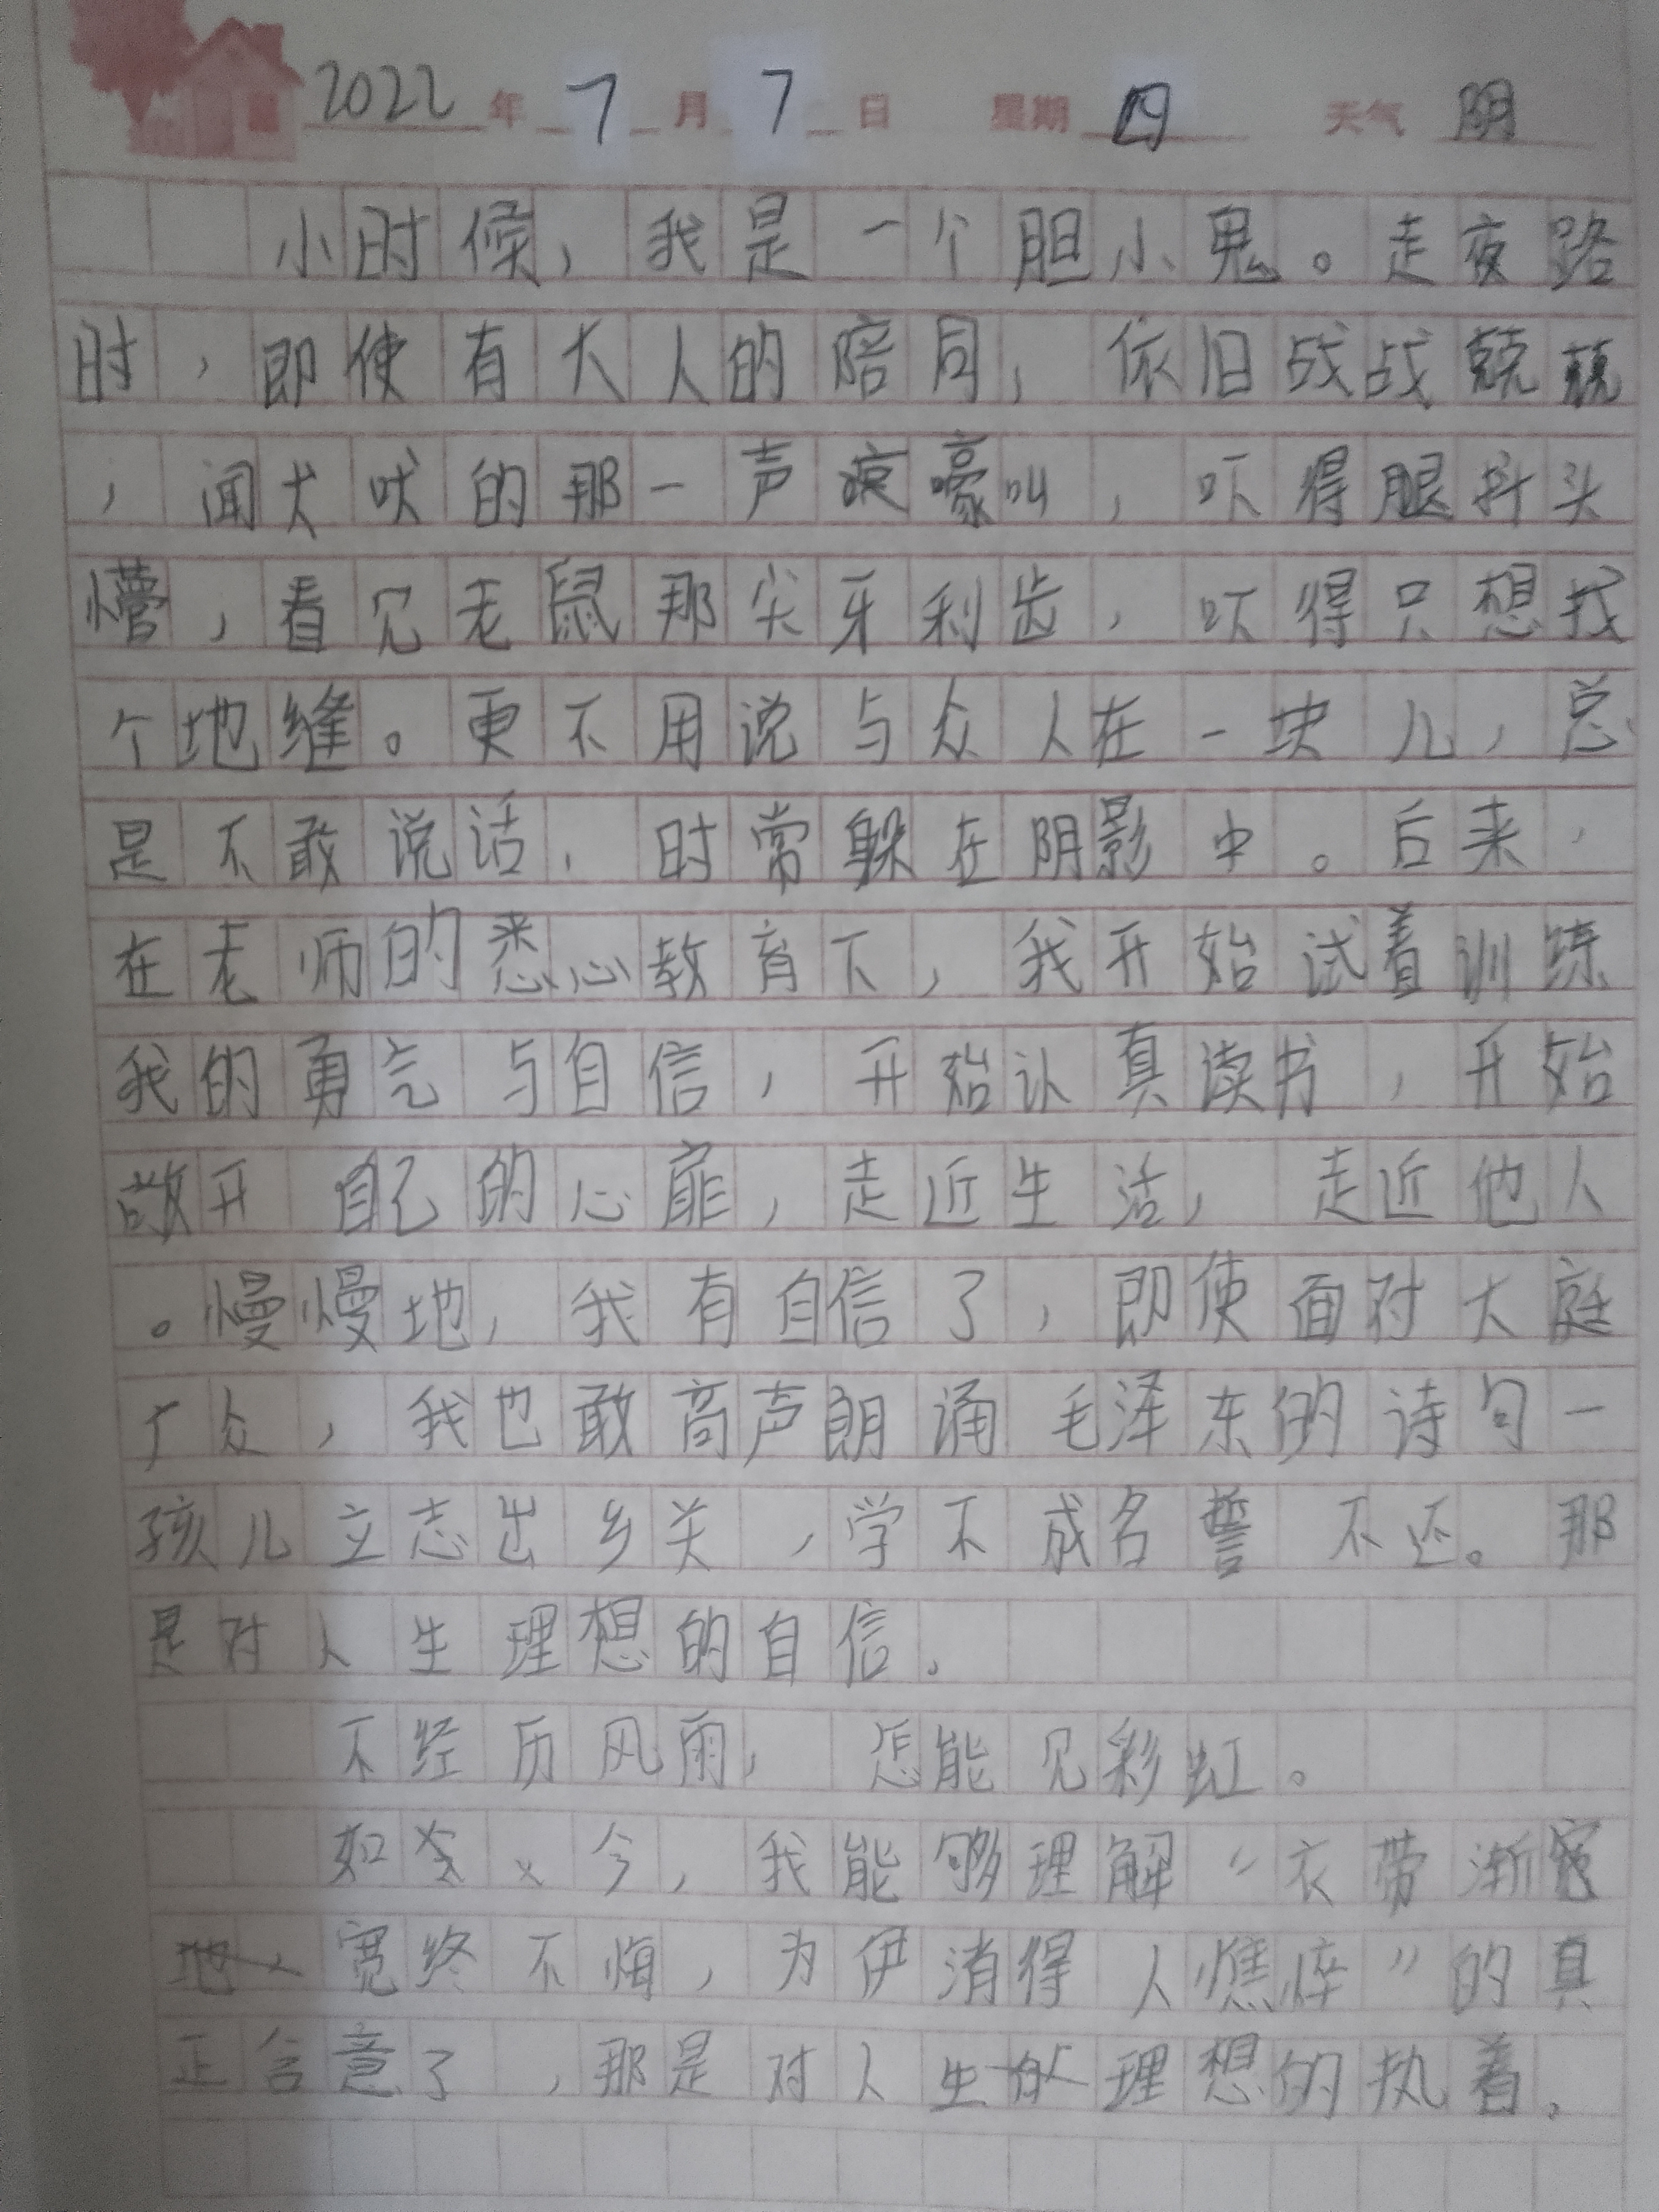 2022年 7月 7日 星期四 天气 阴
小时候，我是一个胆小鬼。走夜路
时，即使有大人的陪同，依旧战战兢兢
，闻犬吠的那一声哀嚎叫，吓得腿抖头
懵，看见老鼠那尖牙利齿，吓得只想找
个地缝。更不用说与众人在一块儿，总
是不敢说话，时常躲在阴影中。后来，
在老师的悉心教育下，我开始试着训练
我的勇气与自信，开始认真读书，开始
敞开自己的心扉，走近生活，走近他人
。慢慢地，我有自信了，即使面对大庭
广众，我也敢高声朗诵毛泽东的诗句一
孩儿立志出乡关，学不成名誓不还。那
是对人生理想的自信。
不经历风雨，怎能见彩虹。
如今，我能够理解“衣带渐
宽终不悔，为伊消得人憔悴”的真
正含意了，那是对人生理想的执着。